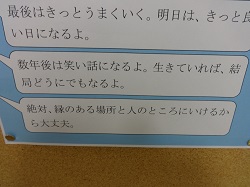 最後はきっとうまくいく。明日は、きっと良
い日になるよ。
数年後は笑い話になるよ。生きていれば、結
局どうにでもなるよ。
絶対、縁のある場所と人のところにいけるか
ら大丈夫。